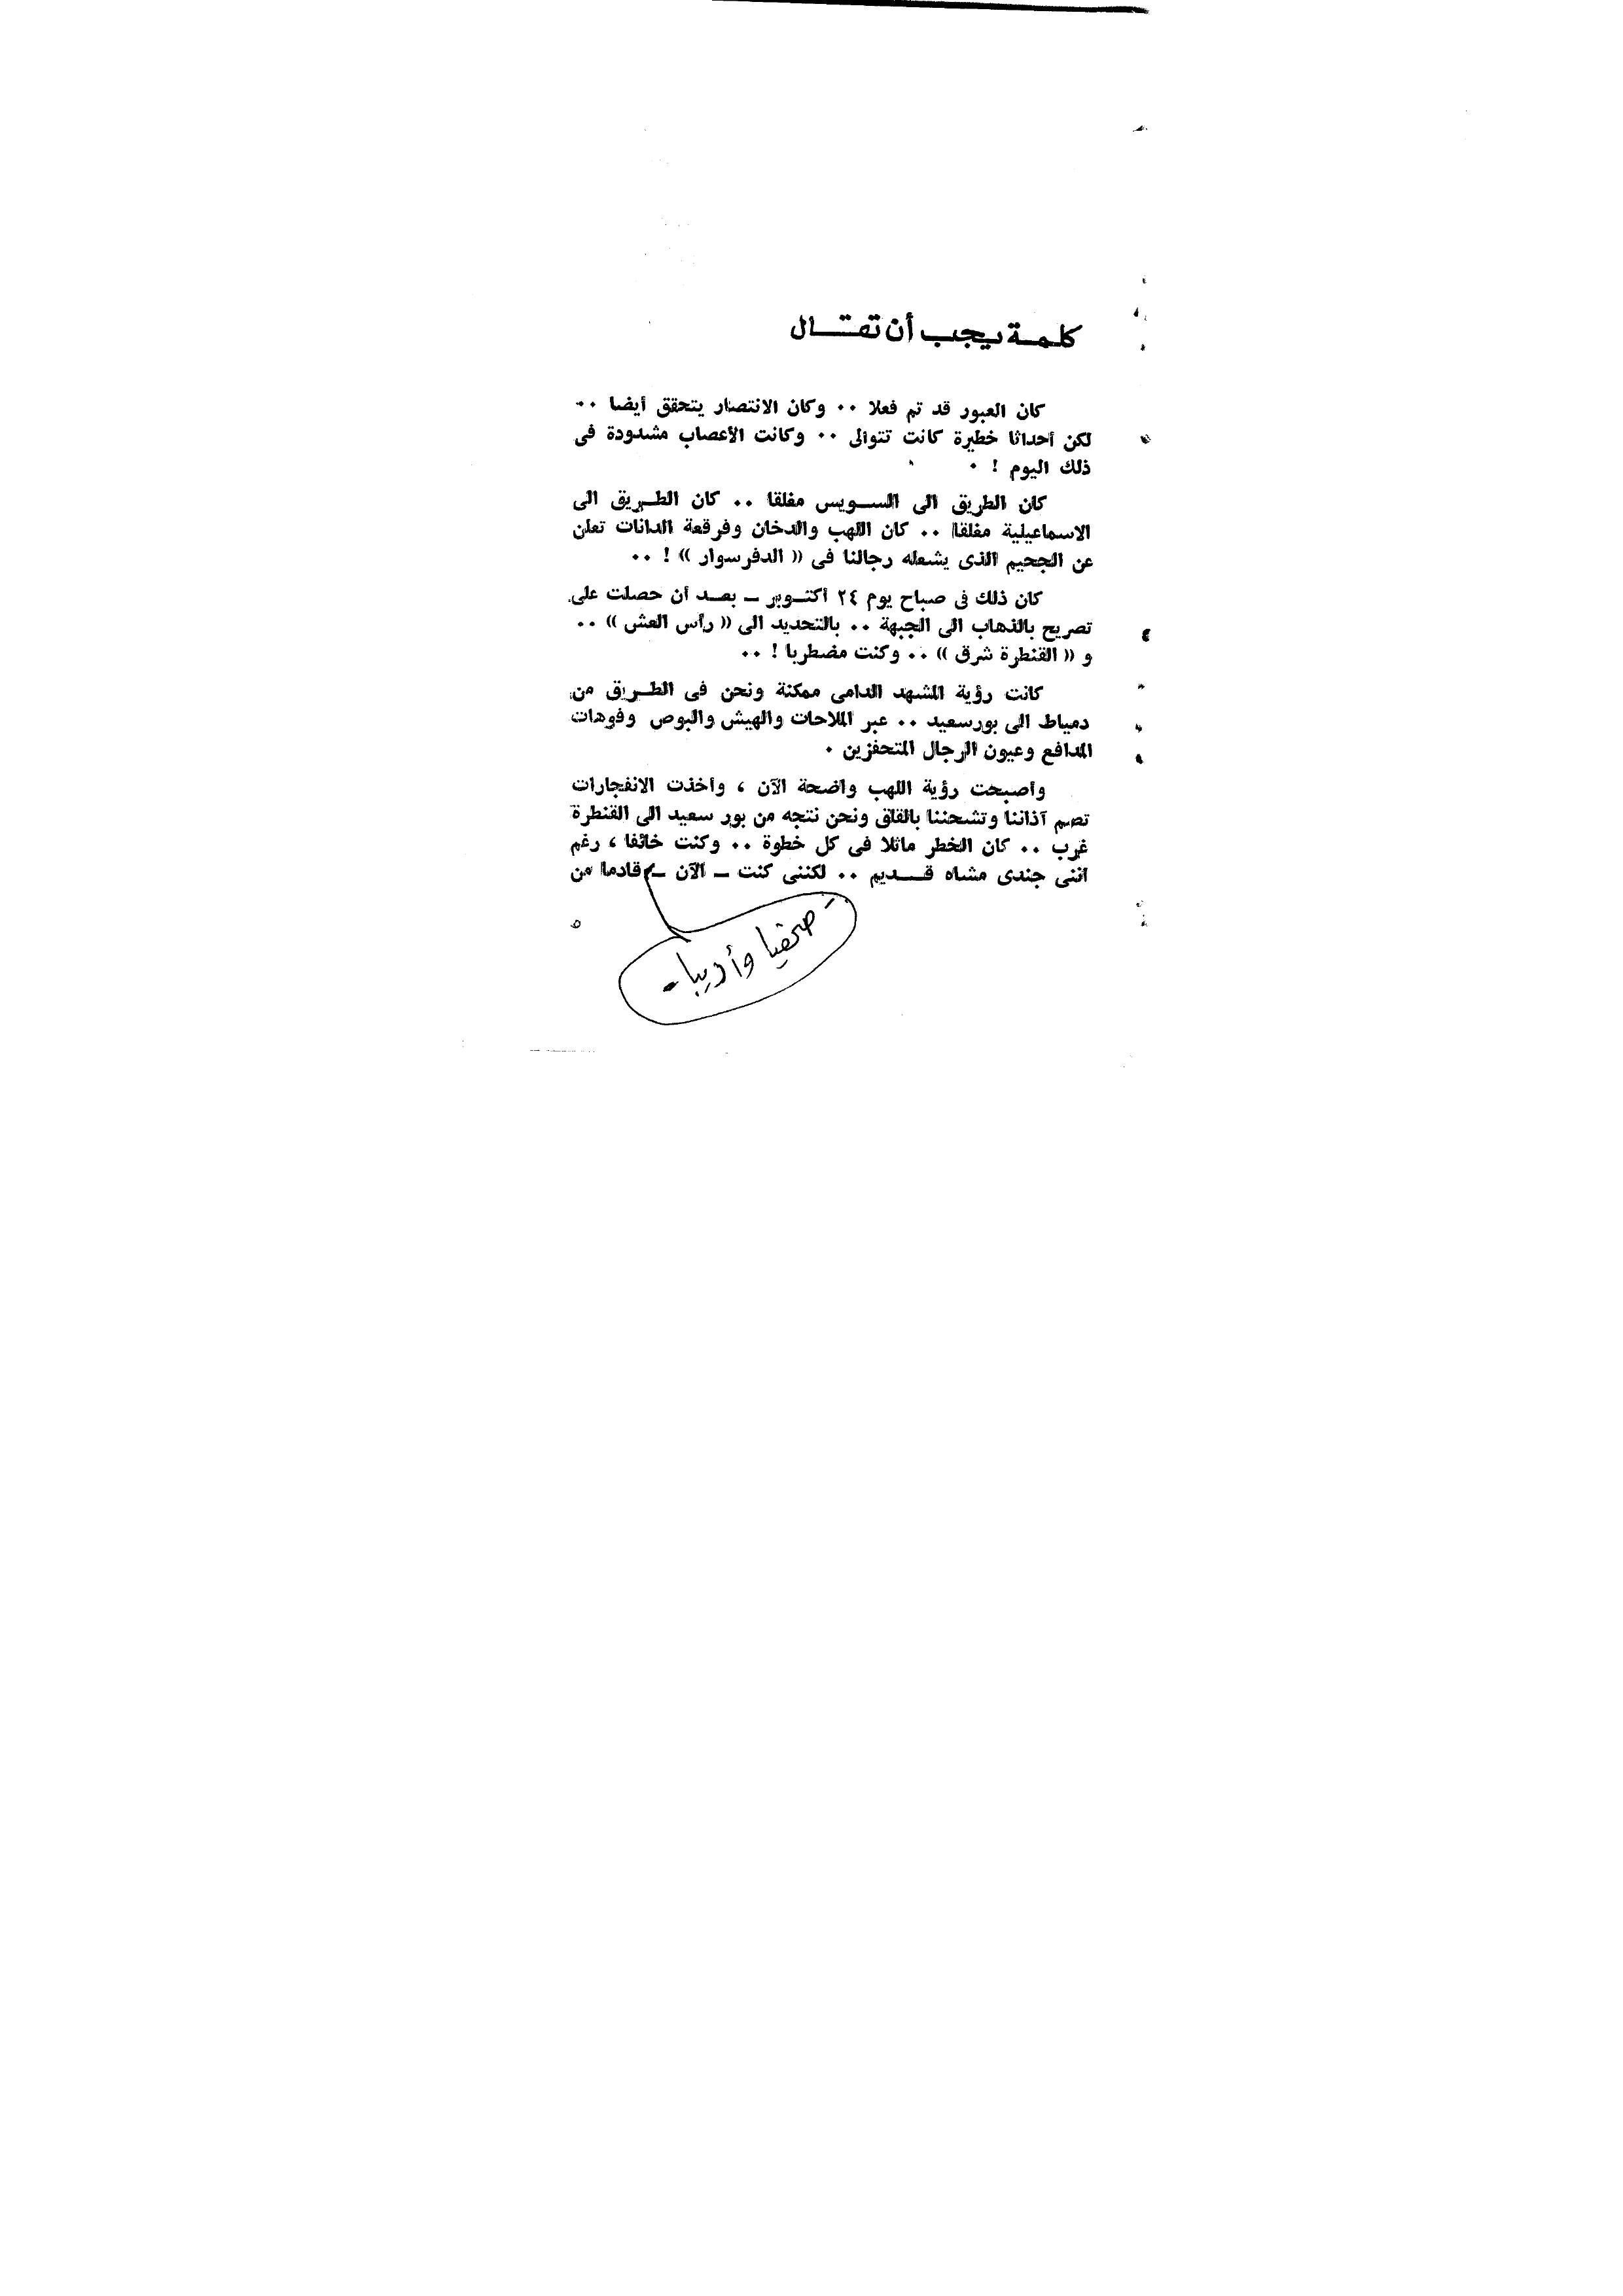 كلمة يجب أن تقال
كان العبور قد تم فعلا ٠٠ وكان الانتصار يتحقق أيضا ٠٠
لكن أحداثا خطيرة كانت تتوالى ٠٠ وكانت الأعصاب مشدودة فى
ذلك اليوم ! ٠
كان الطريق الى السويس مغلقا ٠٠ كان الطريق الى
الاسماعيلية مغلقا ٠٠ كان اللهب والدخان وفرقعة الدانات تعلن
عن الجحيم الذى يشعله رجالنا فى « الدفرسوار » ! ٠٠
كان ذلك فى صباح يوم ٢٤ أكتوبر – بعد أن حصلت على
تصريح بالذهاب الى الجبهة ٠٠ بالتحديد الى « رأس العش » ٠٠
و « القنطرة شرق » ٠٠ وكنت مضطربا ! ٠٠
كانت رؤية المشهد الدامى ممكنة ونحن فى الطريق من
دمياط الى بورسعيد ٠٠ عبر الملاحات والهيش والبوص وفوهات
المدافع وعيون الرجال المتحفزين ٠
وأصبحت رؤية اللهب واضحة الآن ، وأخذت الانفجارات
تصم آذاننا وتشحننا بالقلق ونحن نتجه من بور سعيد الى القنطرة
غرب ٠٠ كان الخطر ماثلا فى كل خطوة ٠٠ وكنت خائفا ، رغم
اننى جندى مشاه قديم ٠٠ لكننى كنت – الآن – قادما من
- صحفيا وأديبا -
٥